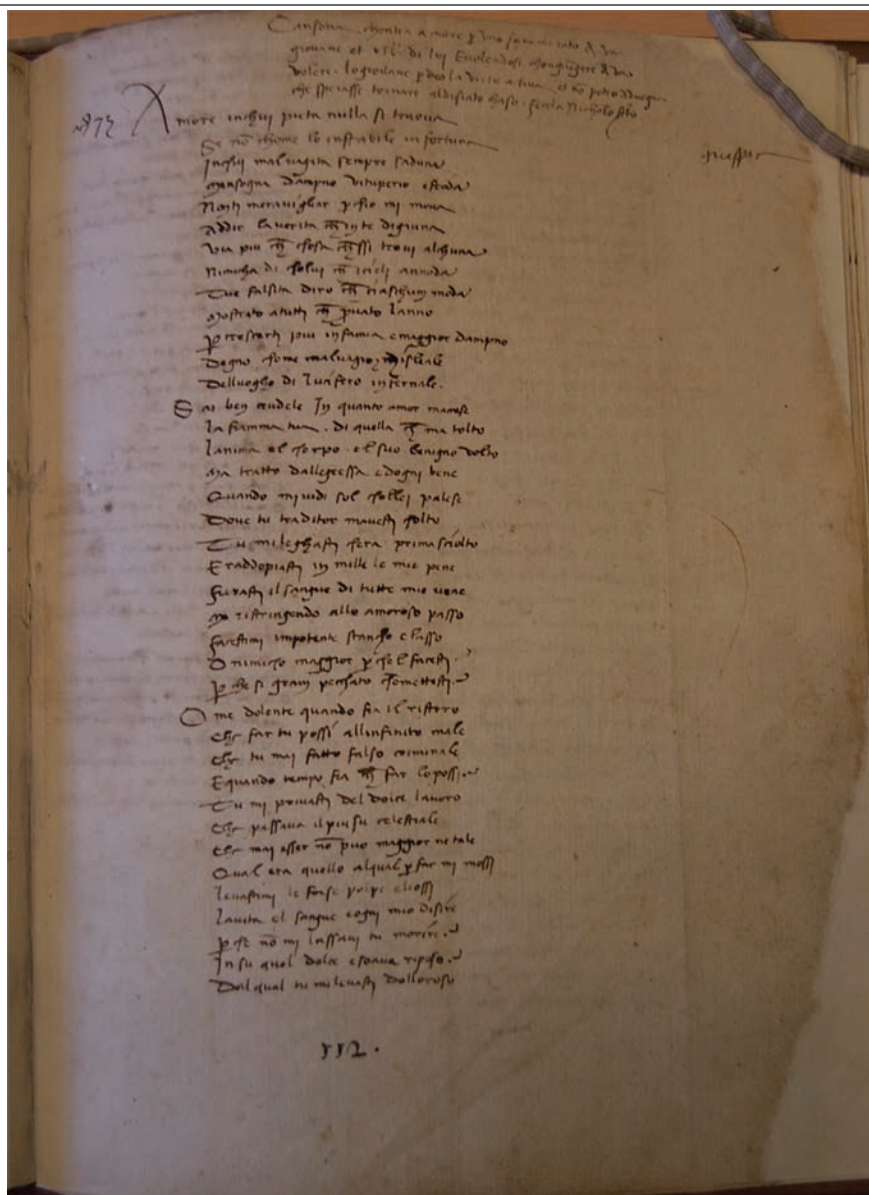 Canzona chontra amore p uno innamorato di una
giovane et ella di lui E volendosi chongiugnere
volere la giovane pdeo la virtu ativa et no potero
che sperasse tornare al disiato chaso fecela Nicholo
Amore inchui pieta nulla si truova
Se no chome lo instabile in fortuna
Inchui malvagita sempre saduna
Menzogna dampno vituperio e froda
Non ti meravigliar p chio mi mova
Addir la verita ch in te digiuna
Via piu ch chosa ch si trovi alchuna
Nimicha di cholui ch icieli annoda
Tue falsita diro ch ciaschun moda
Mostrato a tutti ch puato lanno
p crescerti piu infamia e maggior dampno
Degno chome malvagio disleale
Delluogho di Lucifero infernale.
Sai ben crudele In quanto amor macese
la fiamma tua. di quella ch ma tolto
lanima el chorpo el suo benigno volto
Ma tratto dallegrezza e dogni bene
Quando mi vidi sol chollei palese
Dove tu traditor mavesti cholto
Tu mi leghasti chera prima sciolto
E raddopiasti in mille le mie pene
furasti il sangue di tutte mie vene
Mo ristringendo allo amoroso passo
facestimi impotente stancho e lasso
O nimicho maggior p chel facesti.
p che si gram pecchato chomettesti.
Ome dolente quando fia il ristoro
Che far tu possi allinfinito male
Che tu mai fatto falso criminale
E quando tempo fia ch far lo possi.
Tu mi privasti del dolce lavoro
Che passava il piu su celestiale
Che mai esser no puo maggior ne tale
Qual era quello alqual p far mi mossi
levastimi le forze polpe elossi
lavita el sangue e ogni mio disire
p che no mi lassavi tu morire.
In su quel dolce e soava riposo.
Dal qual tu mi levasti dolloroso
112.